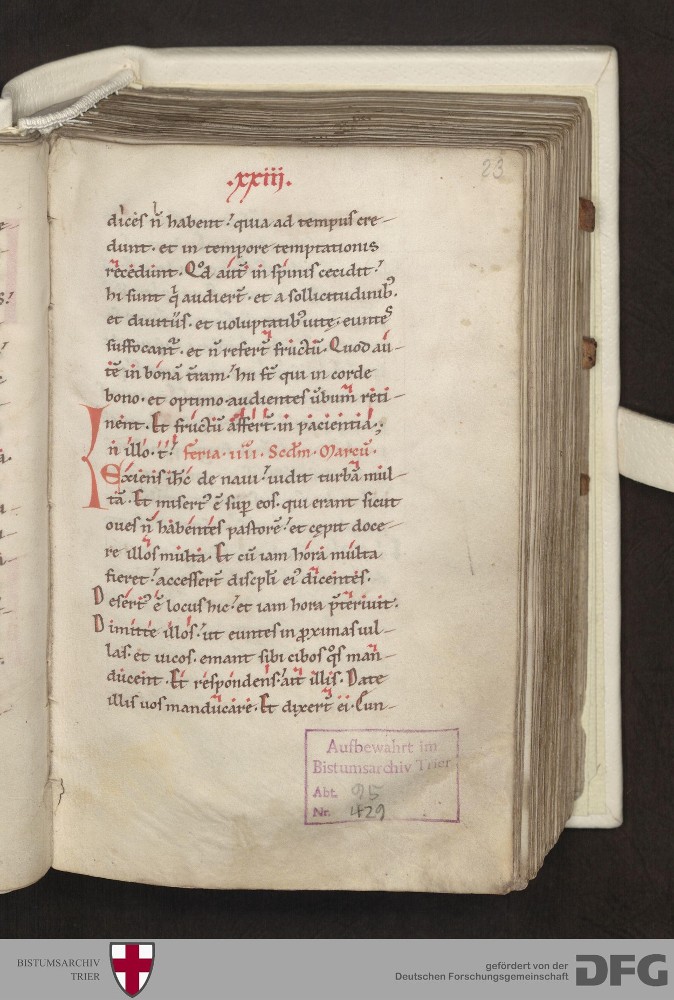 .xxiij.
23
dices n̄ habent. quia ad tempus cre-
dunt. et in tempore temptationis
recedunt. Qd̄ aut̄ in spinis cecidit.
hi sunt q̄ audierт̄. et a sollicitudinib;.
et diuitiis. et uoluptatib; uitę. euntes
suffocant̄. et n̄ refert̄ fructū. Quod au-
tē in bonā t̄ram. hii st̄ qui in corde
bono. et optimo audientes ūbum reti-
nent. Et fructū affert̄ in paciencia.
In illo. t̄. feria. iiii. Scdm̄. Marcū.
Exiens ih̄c de naui. uidit turbā mul-
tā. Et misert᾽ ē sup̄ eos. qui erant sicut
oues n̄ habentes pastorē. et cępit doce-
re illos multa. Et cū iam hora multa
fieret. accessert̄ discpl̄i ei᾽ dicentes.
Desert᾽ ē locus hic. et iam hora p̄teriuit.
Dimitte illos. ut euntes in ꝓximas uil-
las. et uicos. emant sibi cibos q̄s man-
ducent. Et respondens. ait illis. Date
illis uos manducare. Et dixert̄ ei. Eun-
Aufbewahrt im
Bistumsarchiv Trier
Abt. 95
Nr. 429
BISTUMSARCHIV
TRIER
gefördert von der
Deutschen Forschungsgemeinschaft
DFG